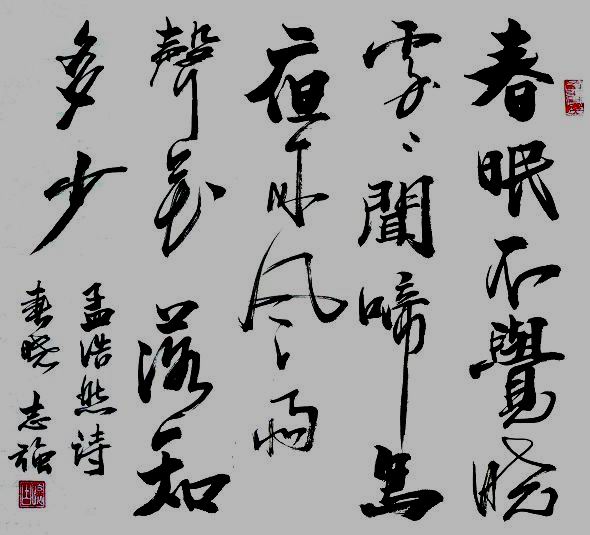 春眠不覺晓
處〻聞啼鳥
夜来風雨
聲花落知
多少
孟浩然詩
春晓 志强